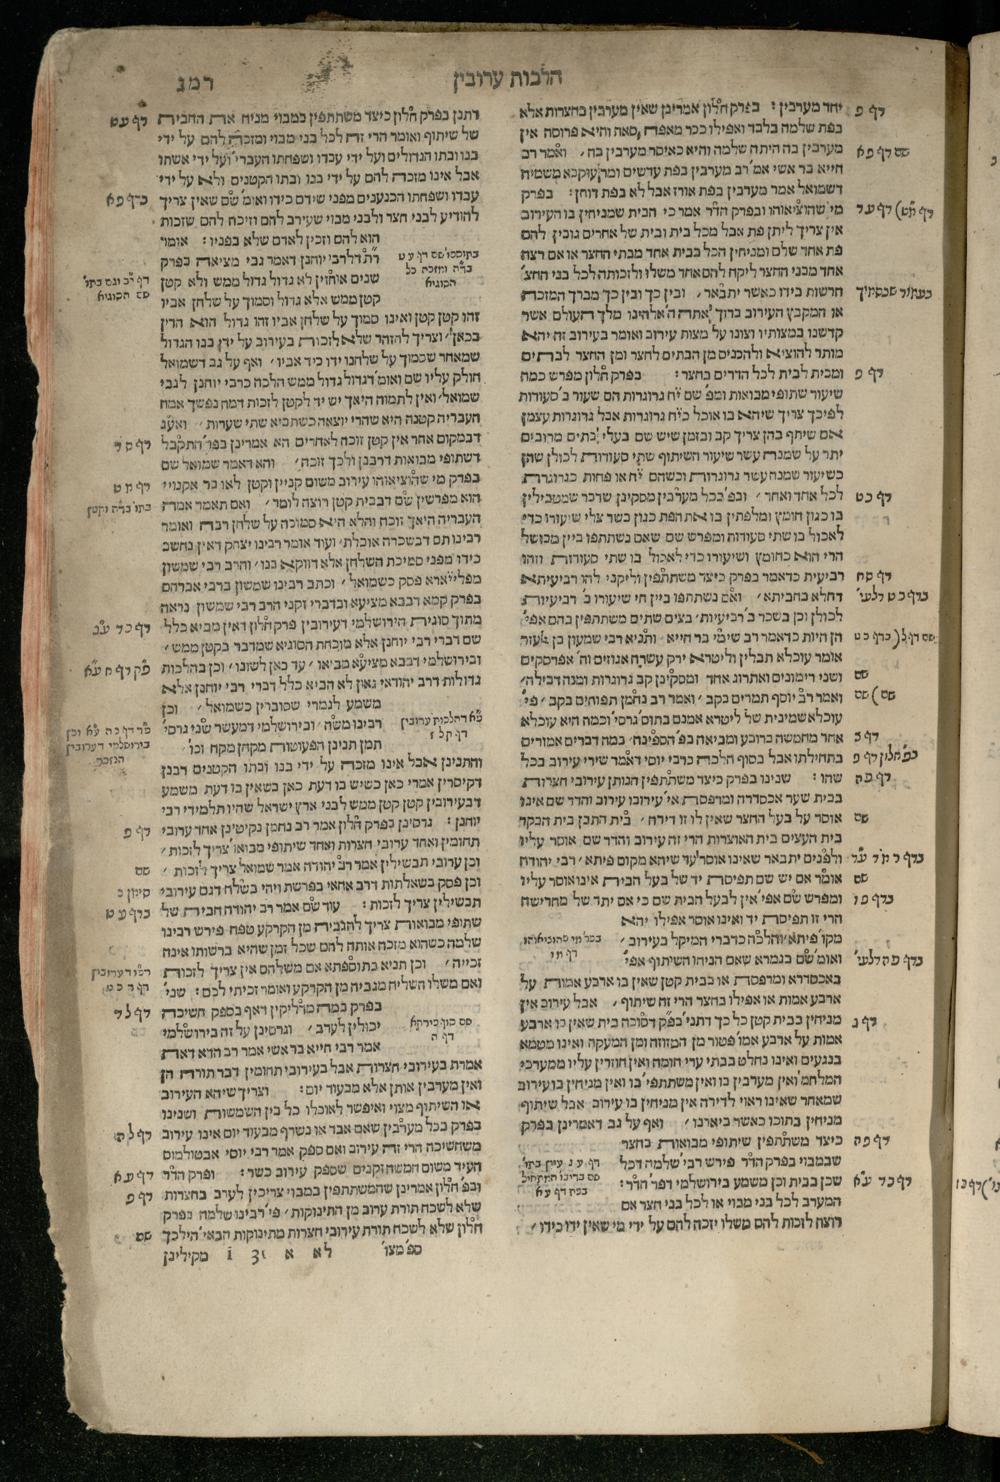 הלכות ערובין
רמג
יחד מערבין : בפרק חלון אמרינן שאין מערבין בחצרות אלא
בפת שלמה בלבד ואפילו ככר מאפה סאה והיא פרוסה אין
מערבין בה היתה שלמה והיא כאיסר מערבין בה , ואמר רב
חייא בר אשי אמ'רב מערבין בפת עדשים ומר עוקבא משמיה
דשמואל אמר מערבין בפת אורז אבל לא בפת דוחן : בפרק
מי שהוציאוהו ובפרק הדר אמר כי הבית שמניחין בו העירוב
אין צריך ליתן פת אבל מכל בית ובית של אחרים גובין להם
פת אחד שלם ומניחין הכל בבית אחד מבתי החצר או אם רצה
אחד מבני החצר ליקח להם אחד משלו ולזכותה לכל בני החצ'
הרשות בידו כאשר יתבאר , ובין כך ובין כך מברך המזכה
או המקבץ העירוב ברוך אתה ה'אלהינו מלך העולם אשר
קדשנו במצותיו וצונו על מצות עירוב ואומר בעירוב זה יהא
מותר להוציא ולהכניס מן הבתים לחצר ומן החצר לבתים
ומבית לבית לכל הדרים בחצר : בפרק חלון מפרש כמה
שיעור שתופי מבואות ומפ' שם י"ח גרוגרות הם שעור ב'סעודות
לפיכך צריך שיהא בו אוכל כי"ח גרוגרות אבל גרוגרות עצמן
אם שיתף בהן צריך קב ובזמן שיש שם בעלי בתים מרובים
יתר על שמנה עשר שיעור השיתוף שתי סעודות לכולן שהן
כשיעור שמנה עשר גרוגרות וכשהם י"ח או פחות כגרוגרת
לכל אחד ואחד , ובפ'בכל מערבין מסקינן שדבר שמטבילין
בו כגון חומץ ומלפתין בו את הפת כגון בשר צלי שיעורו כדי
לאכול בו שתי סעודות ומפרש שם שאם נשתתפו ביין מבושל
הרי הוא כחומץ ושיעורו כדי לאכול בו שתי סעודות וזהו
רביעית כדאמר בפרק כיצד משתתפין וליקני להו רביעיתא
דחלא בחביתא , ואם נשתתפו ביין חי שיעורו ב' רביעיות
לכולן וכן בשכר ב'רביעיות' בצים שתים משתתפין בהם אפי'
הן חיות כדאמר רב שימי בר חייא , ותניא רבי שמעון בן אלעזר
אומר עוכלא תבלין וליטרא ירק עשרה אגוזים וה' אפרסקים
ושני רימונים ואתרוג אחד ומסקינן קב גרוגרות ומנה דבילה
ואמר רב יוסף תמרים בקב , ואמר רב נחמן תפוחים בקב , פי'
עוכלא שמינית של ליטרא אמנם בתוס' גרסי' וכמה היא עוכלא
אחד מחמשה ברובע ומביאה בפ'הספינה , במה דברים אמורים
בתחילתו אבל בסוף הלכה כרבי יוסי דאמר שירי עירוב בכל
שהו : שנינו בפרק כיצד משתתפין הנותן עירובי חצרות
בבית שער אכסדרה ומרפסת אי'עירובו עירוב והדר שם אינו
אוסר על בעל החצר שאין לו זו דירה , בית התבן בית הבקר
בית העצים בית האוצרות הרי זה עירוב והדר שם אוסר עליו
ולפנים יתבאר שאינו אוסר עד שיהא מקום פיתא , רבי יהודה
אומר אם יש שם תפיסת יד של בעל הבית אינו אוסר עליו
ומפרש שם אפי' אין לבעל הבית שם כי אם יתד של מחרישה
הרי זו תפיסת יד ואינו אוסר אפילו יהא
מקו'פיתא והלכה כדברי המיקל בעירוב ,
ואומ'שם בגמרא שאם הניחו השיתוף אפי'
באכסדרא ומרפסת או בבית קטן שאין בו ארבע אמות על
ארבע אמות או אפילו בחצר הרי זה שיתוף , אבל עירוב אין
מניחין בבית קטן כל כך דתני'בפ'ק דסוכה בית שאין בו ארבע
אמות על ארבע אמו' פטור מן המזוזה ומן המעקה ואינו מטמא
בנגעים ואינו נחלט בבתי ערי חומה ואין חוזרין עליו ממערכי
המלחמ'ואין מערבין בו ואין משתתפי'בו ואין מניחין בו עירוב
שמאחר שאינו ראוי לדירה אין מניחין בו עירוב אבל שיתוף
מניחין בתוכו כאשר ביארנו , ואף על גב דאמרינן בפרק
כיצד משתתפין שיתופי מבואות בחצר
שבמבוי בפרק הדר פירש רבי'שלמה דכל
שכן בבית וכן משמע בירושלמי דפר'הדר :
המערב לכל בני מבוי או לכל בני חצר אם
רוצה לזכות להם משלו יזכה להם על ידי מי שאין ידו כידו ,
דף פ
שם דף פא
דף מט) דף עד
בעמוד שבסמוך
דף פ
דף כט
דף סח
בדף כט לרעי'
שם דף ל( בדף כט
שם
שם) שם
דף ב
בפ'חלון דף פ
דף פה
שם
בדף ח ודף עד
שם
בדף פו
בכל מי שהוציאוהו
דף מי
בדף פה לרעי'
דף ג
דף פה
דף ע ג עיין בתו'
שם בדיבו'המתחיל
בפת דף עא
דף כד ע"א
דתנן בפרק חלון כיצד משתתפין במבוי מניח את החבית
של שיתוף ואומר הרי זה לכל בני מבוי ומזכה להם על ידי
בנו ובתו הגדולים ועל ידי עבדו ושפחתו העברי' ועל ידי אשתו
אבל אינו מזכה להם על ידי בנו ובתו הקטנים ולא על ידי
עבדו ושפחתו הכנענים מפני שידם כידו ואומ' שם שאין צריך
להודיע לבני חצר ולבני מבוי שעירב להם וזיכה להם שזכות
הוא להם וזכין לאדם שלא בפניו : אומר
ר"ת דלרבי יוחנן דאמר גבי מציאה בפרק
שנים אוחזין לא גדול גדול ממש ולא קטן
קטן ממש אלא גדול וסמוך על שלחן אביו
זהו קטן קטן ואינו סמוך על שלחן אביו זהו גדול הוא הדין
בכאן , וצריך להזהר שלא לזכות בעירוב על ידי בנו הגדול
שמאחר שסמוך על שלחנו ידו כיד אביו , ואף על גב דשמואל
חולק עליו שם ואומ'דגדול גדול ממש הלכה כרבי יוחנן לגבי
שמואל , ואין לתמוה היאך יש יד לקטן לזכות דמה נפשך אמה
העבריה קטנה היא שהרי יוצאה כשתביא שתי שערות , ואע"ג
דבמקום אחר אין קטן זוכה לאחרים הא אמרינן בפר'התקבל
דשתופי מבואות דרבנן ולכך זוכה , והא דאמר שמואל שם
בפרק מי שהוציאוהו עירוב משום קניין וקטן לאו בר אקנויי
הוא מפרשין שם דבבית קטן רוצה לומר , ואם תאמר אמה
העבריה היאך זוכה והלא היא סמוכה על שלחן רבה ואומר
רבינו תם דבשכרה אוכלת , ועוד אומר רבינו יצחק דאין נחשב
כידו מפני סמיכת השלחן אלא דווקא בנו , והרב רבי שמשון
מפלייזא פסק כשמואל , וכתב רבינו שמשון ברבי אברהם
בפרק קמא דבבא מציעא ובדברי זקני הרב רבי שמשון נראה
מתוך סוגית הירושלמי דעירובין פרק חלון דאין מביא כלל
שם דברי רבי יוחנן אלא מוכחת הסוגיא שמדבר בקטן ממש ,
ובירושלמי דבבא מציעא מביאו , עד כאן לשונו , וכן בהלכות
גדולות דרב יהודאי גאון לא הביא כלל דברי רבי יוחנן אלא
משמע לגמרי שסוברין כשמואל , וכן
רבינו משה , ובירושלמי דמעשר שני גרסי'
תמן תנינן הפעוטות מקחן מקח וכו'
והתנינן אבל אינו מזכה על ידי בנו ובתו הקטנים רבנן
דקיסרין אמרי כאן כשיש בו דעת כאן בשאין בו דעת משמע
דבעירובין קטן קטן ממש לבני ארץ ישראל שהיו תלמידי רבי
יוחנן : גרסינן בפרק חלון אמר רב נחמן נקיטינן אחד ערובי
תחומין ואחד ערובי חצרות ואחד שיתופי מבואו'צריך לזכות ,
וכן ערובי תבשילין אמר רב יהודה אמר שמואל צריך לזכות ,
וכן פסק בשאלתות דרב אחאי בפרשת ויהי בשלח דגם עירובי
תבשילין צריך לזכות : עוד שם אמר רב יהודה חבית של
שתופי מבואות צריך להגביה מן הקרקע טפח פירש רבינו
שלמה כשהוא מזכה אותה להם שכל זמן שהיא ברשותו אינה
זכייה , וכן תניא בתוספתא אם משלהם אין צריך לזכות
ואם משלו השליח מגביה מן הקרקע ואומר זכיתי לכם : שני'
בפרק במה מדליקין דאף בספק חשיכה
יכולין לערב , וגרסינן על זה בירושלמי
אמר רבי חייא בר אשי אמר רב הדא דאת
אמרת בעירובי חצרות אבל בעירובי תחומין דבר תורה הן
ואין מערבין אותן אלא מבעוד יום : וצריך שיהא העירוב
או השיתוף מצוי ואיפשר לאוכלו כל בין השמשות ושנינו
בפרק בכל מערבין שאם אבד או נשרף מבעוד יום אינו עירוב
משחשיכה הרי זה עירוב ואם ספק אמר רבי יוסי אבטולמוס
העיד משום חמשה זקנים שספק עירוב כשר : ופרק הדר
ובפ' חלון אמרינן שהמשתתפין במבוי צריכין לערב בחצרות
שלא לשכח תורת ערוב מן התינוקות , פי'רבינו שלמה בפרק
חלון שלא לשכח תורת עירובי חצרות מתינוקות הבאי'הילכך
ספ מצו' לא א 1 31 מקילינן
דף עט
בדף פא
בתוספו'שם דף עט
ד"ה ומזכה כל
הסוגיא
דף יב וגם בתו'
שם הסוגיא
דף סד
דף מט
בתו'ד"ה וקטן
דף כד ע"ב
פ"ק דף ח ע"א
פ"א דהלכות ערובין
דף תל ז
פ"ד דף כה ע"א וכן
בירושלמי דערובין
הנזכר
דף פ
שם
סימן כ
בדף עט
רפ"ו דערובין
דף ה כט
דף לד
שם סוף פירקא
דף ה
דף לה
דף עא
דף פ
שם